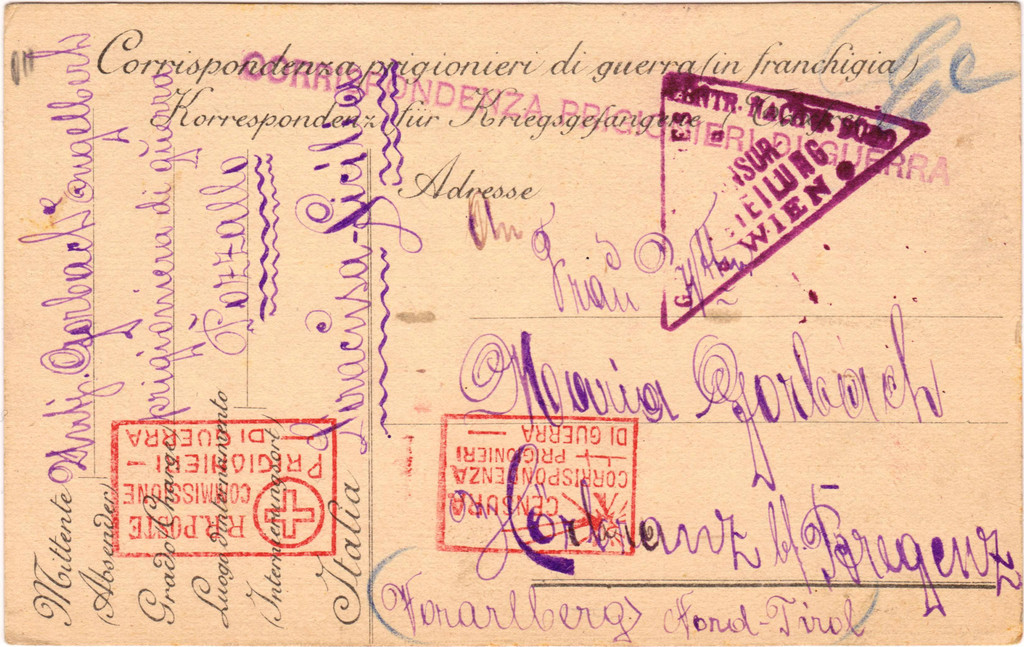 Corrispondenza prigionieri di guerra (in franchigia)
Korrespondenz für Kriegsgefangene
CORRISPONDENZA PRIGIONIERI DI GUERRA
Adresse
An
Frau
Maria Gorbach
in Hörbranz b/ Bregenz
Vorarlberg Nord-Tirol
NACHW. BÜRO
WIEN
Mittente
(Absender)
Gorbach Engelbert
Grado (Charge)
prigioniero di guerra
Luogo d'internamento
(Internierungsort)
Pozzallo
Siracusa-Sicilien
Italia
R.R. POSTE
COMMISSIONE
PRIGIONIERI
DI GUERRA
CENSURA
CORRISPONDENZA
PRIGIONIERI
DI GUERRA